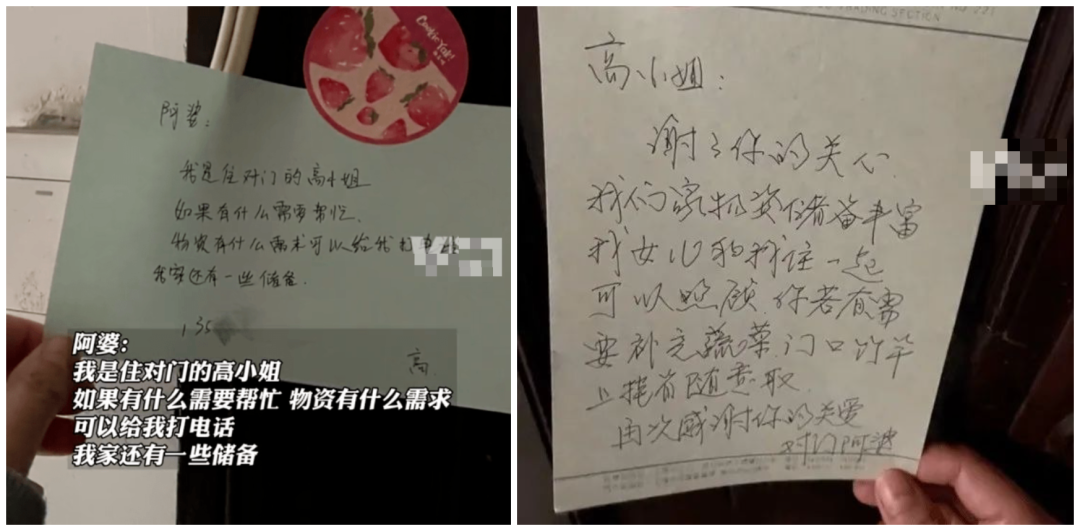 阿婆:
我是住对门的高小姐
如果有什么需要帮忙.
物资有什么需求可以给我打电话
我家还有一些储备.
135
高
Cookie Yak!
阿婆:
我是住对门的高小姐
如果有什么需要帮忙 物资有什么需求
可以给我打电话
我家还有一些储备
TRADING SECTION
高小姐:
谢了你的关心.
我们家物资储备丰富
我女儿和我住一起
可以照顾.你若有需
要补充蔬菜.门口竹竿
上挂着随意取.
再次感谢你的关爱
对门阿婆